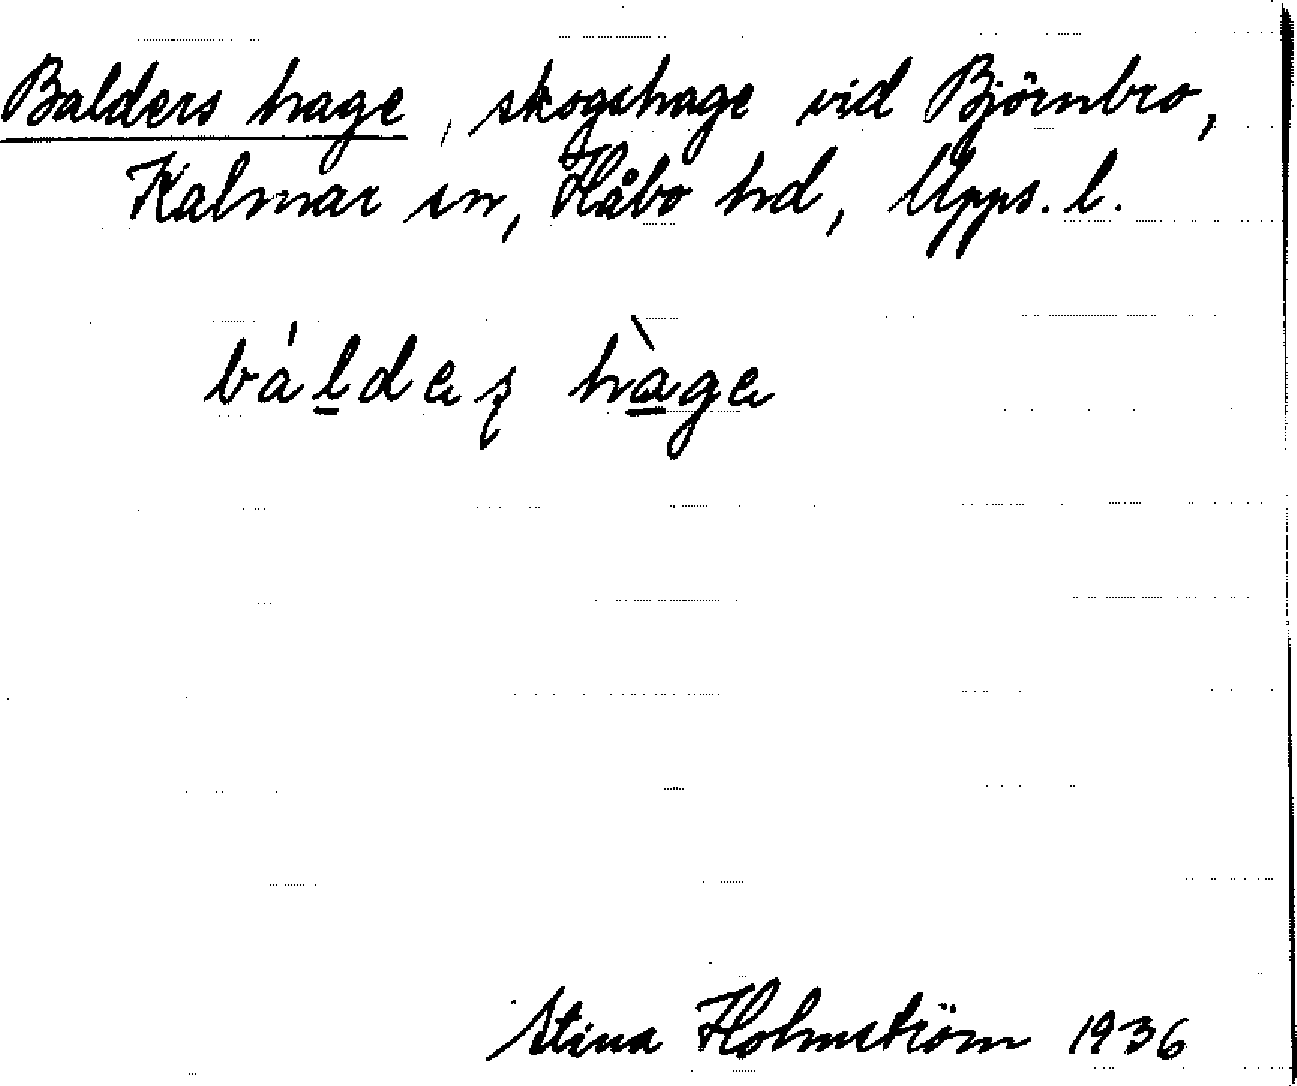 Balders hage, skogshage vid Björnbro,
Kalmar sn, Håbo hd, Upps. l.
bál̲dəʂ hà̲gə
Stina Holmström 1936